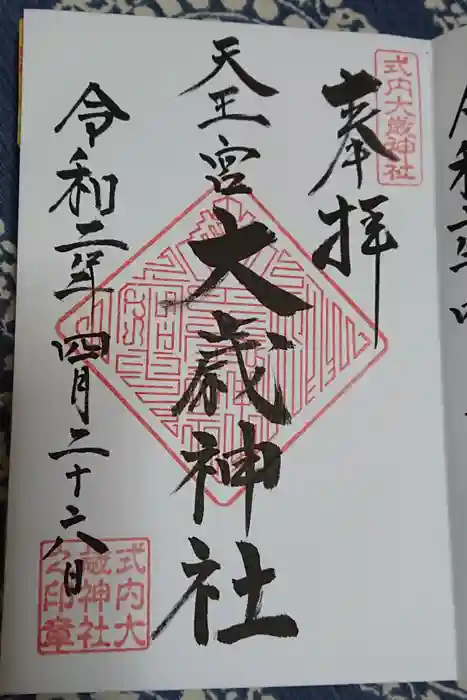 式内大歳神社
奉拝
天王宮
大歳神社
令和二年四月二十六日
式内大
歳神社
之印章